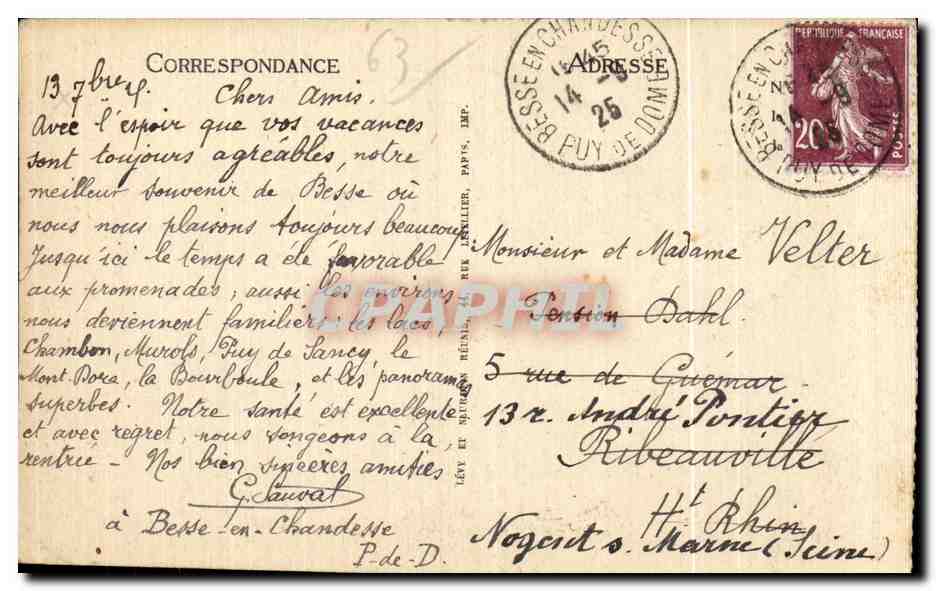 CORRESPONDANCE
63
13 7bre 25.
Chers Amis.
Avec l'espoir que vos vacances
sont toujours agréables, notre
meilleur souvenir de Besse où
nous nous plaisons toujours beaucoup
Jusqu'ici le temps a été favorable
aux promenades; aussi les environs
nous deviennent familiers: les lacs,
Chambon, Murols, Puy de Sancy, le
Mont-Dore, la Bourboule, et les panoramas
superbes. Notre santé est excellente
et avec regret, nous songeons à la
rentrée - Nos bien sincères amitiés
G. Sauvat
à Besse-en-Chandesse
P-de-D.
LÉVY ET NEURDEIN RÉUNIS, 44, RUE LETELLIER, PARIS, IMP.
ADRESSE
BESSE EN CHANDESSE
14 45
14 -9
25
PUY DE DOME
BESSE EN CHANDESSE
PUY DE DOME
REPUBLIQUE FRANÇAISE
20
POSTES
Monsieur et Madame Velter
Pension Dahl.
5 rue de Guémar.
13 r. André Pontier
Ribeauvillé
Ht Rhin
Nogent s. Marne (Seine)
CPAPHIL